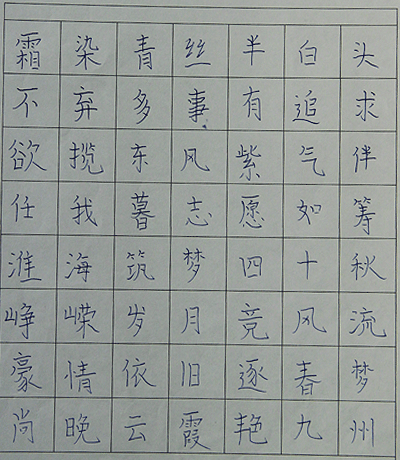 霜染青丝半白头
不弃多事有追求
欲揽东风紫气伴
任我暮志愿如筹
淮海筑梦四十秋
峥嵘岁月竞风流
豪情依旧逐春梦
尚晚云霞艳九州